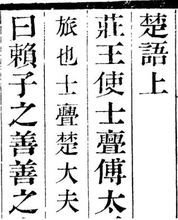 楚語上
莊王使士亹傅太
旅也士亹楚大夫
曰賴子之善善之